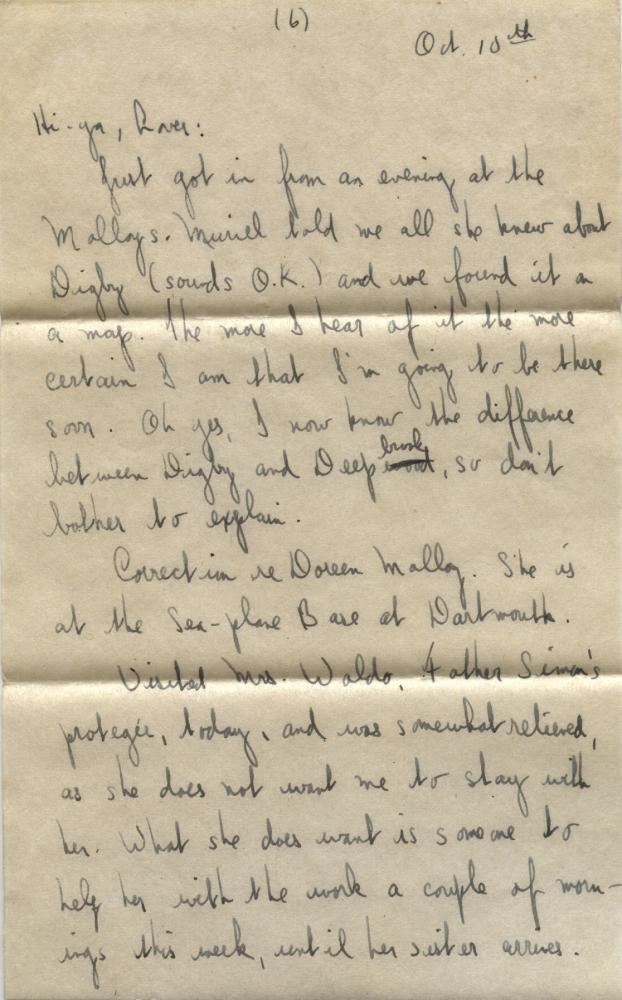 (6)
Oct. 10th
Hi-ya, Lover:
Just got in from an evening at the
Malloys. Muriel told me all she knew about
Digby (sounds O.K.) and we found it on
a map. The more I hear of it the more
certain I am that I'm going to be there
soon. Oh yes, I now know the difference
between Digby and Deep brook, so don't
bother to explain.
Correction re Doreen Malloy. She is
at the Sea-plane Base at Dartmouth.
Visited Mrs. Waldo, Father Simon's
protegée, today, and was somewhat relieved,
as she does not want me to stay with
her. What she does want is someone to
help her with the work a couple of morn-
ings this week, until her sister arrives.